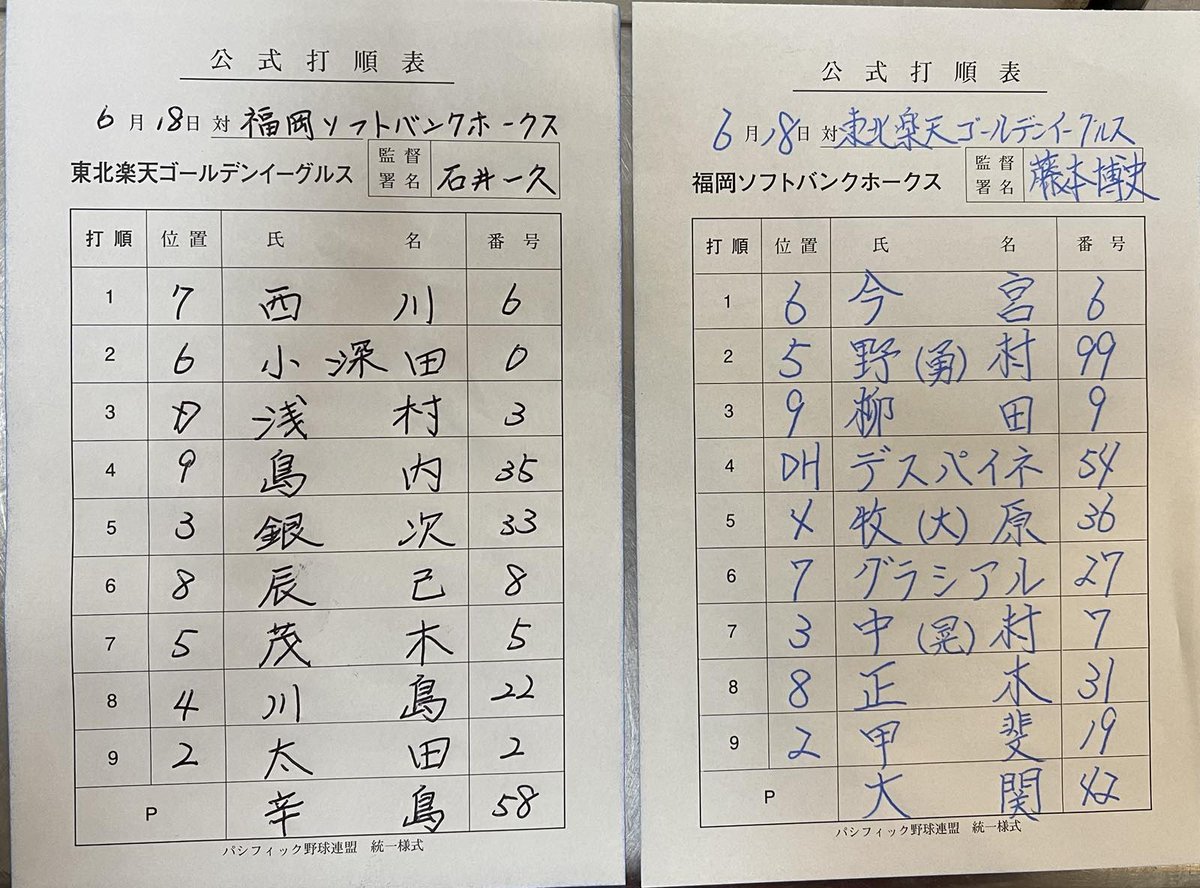 公式打順表
6月18日 対 福岡ソフトバンクホークス
東北楽天ゴールデンイーグルス 監督署名 石井一久
打順 位置 氏名 番号
1 7 西川 6
2 6 小深田 0
3 D 浅村 3
4 9 島内 35
5 3 銀次 33
6 8 辰己 8
7 5 茂木 5
8 4 川島 22
9 2 太田 2
P 辛島 58
パシフィック野球連盟 統一様式
公式打順表
6月18日 対 東北楽天ゴールデンイーグルス
福岡ソフトバンクホークス 監督署名 藤本博史
打順 位置 氏名 番号
1 6 今宮 6
2 5 野(勇)村 99
3 9 柳田 9
4 DH デスパイネ 54
5 4 牧(大)原 36
6 7 グラシアル 27
7 3 中(晃)村 7
8 8 正木 31
9 2 甲斐 19
P 大関 42
パシフィック野球連盟 統一様式